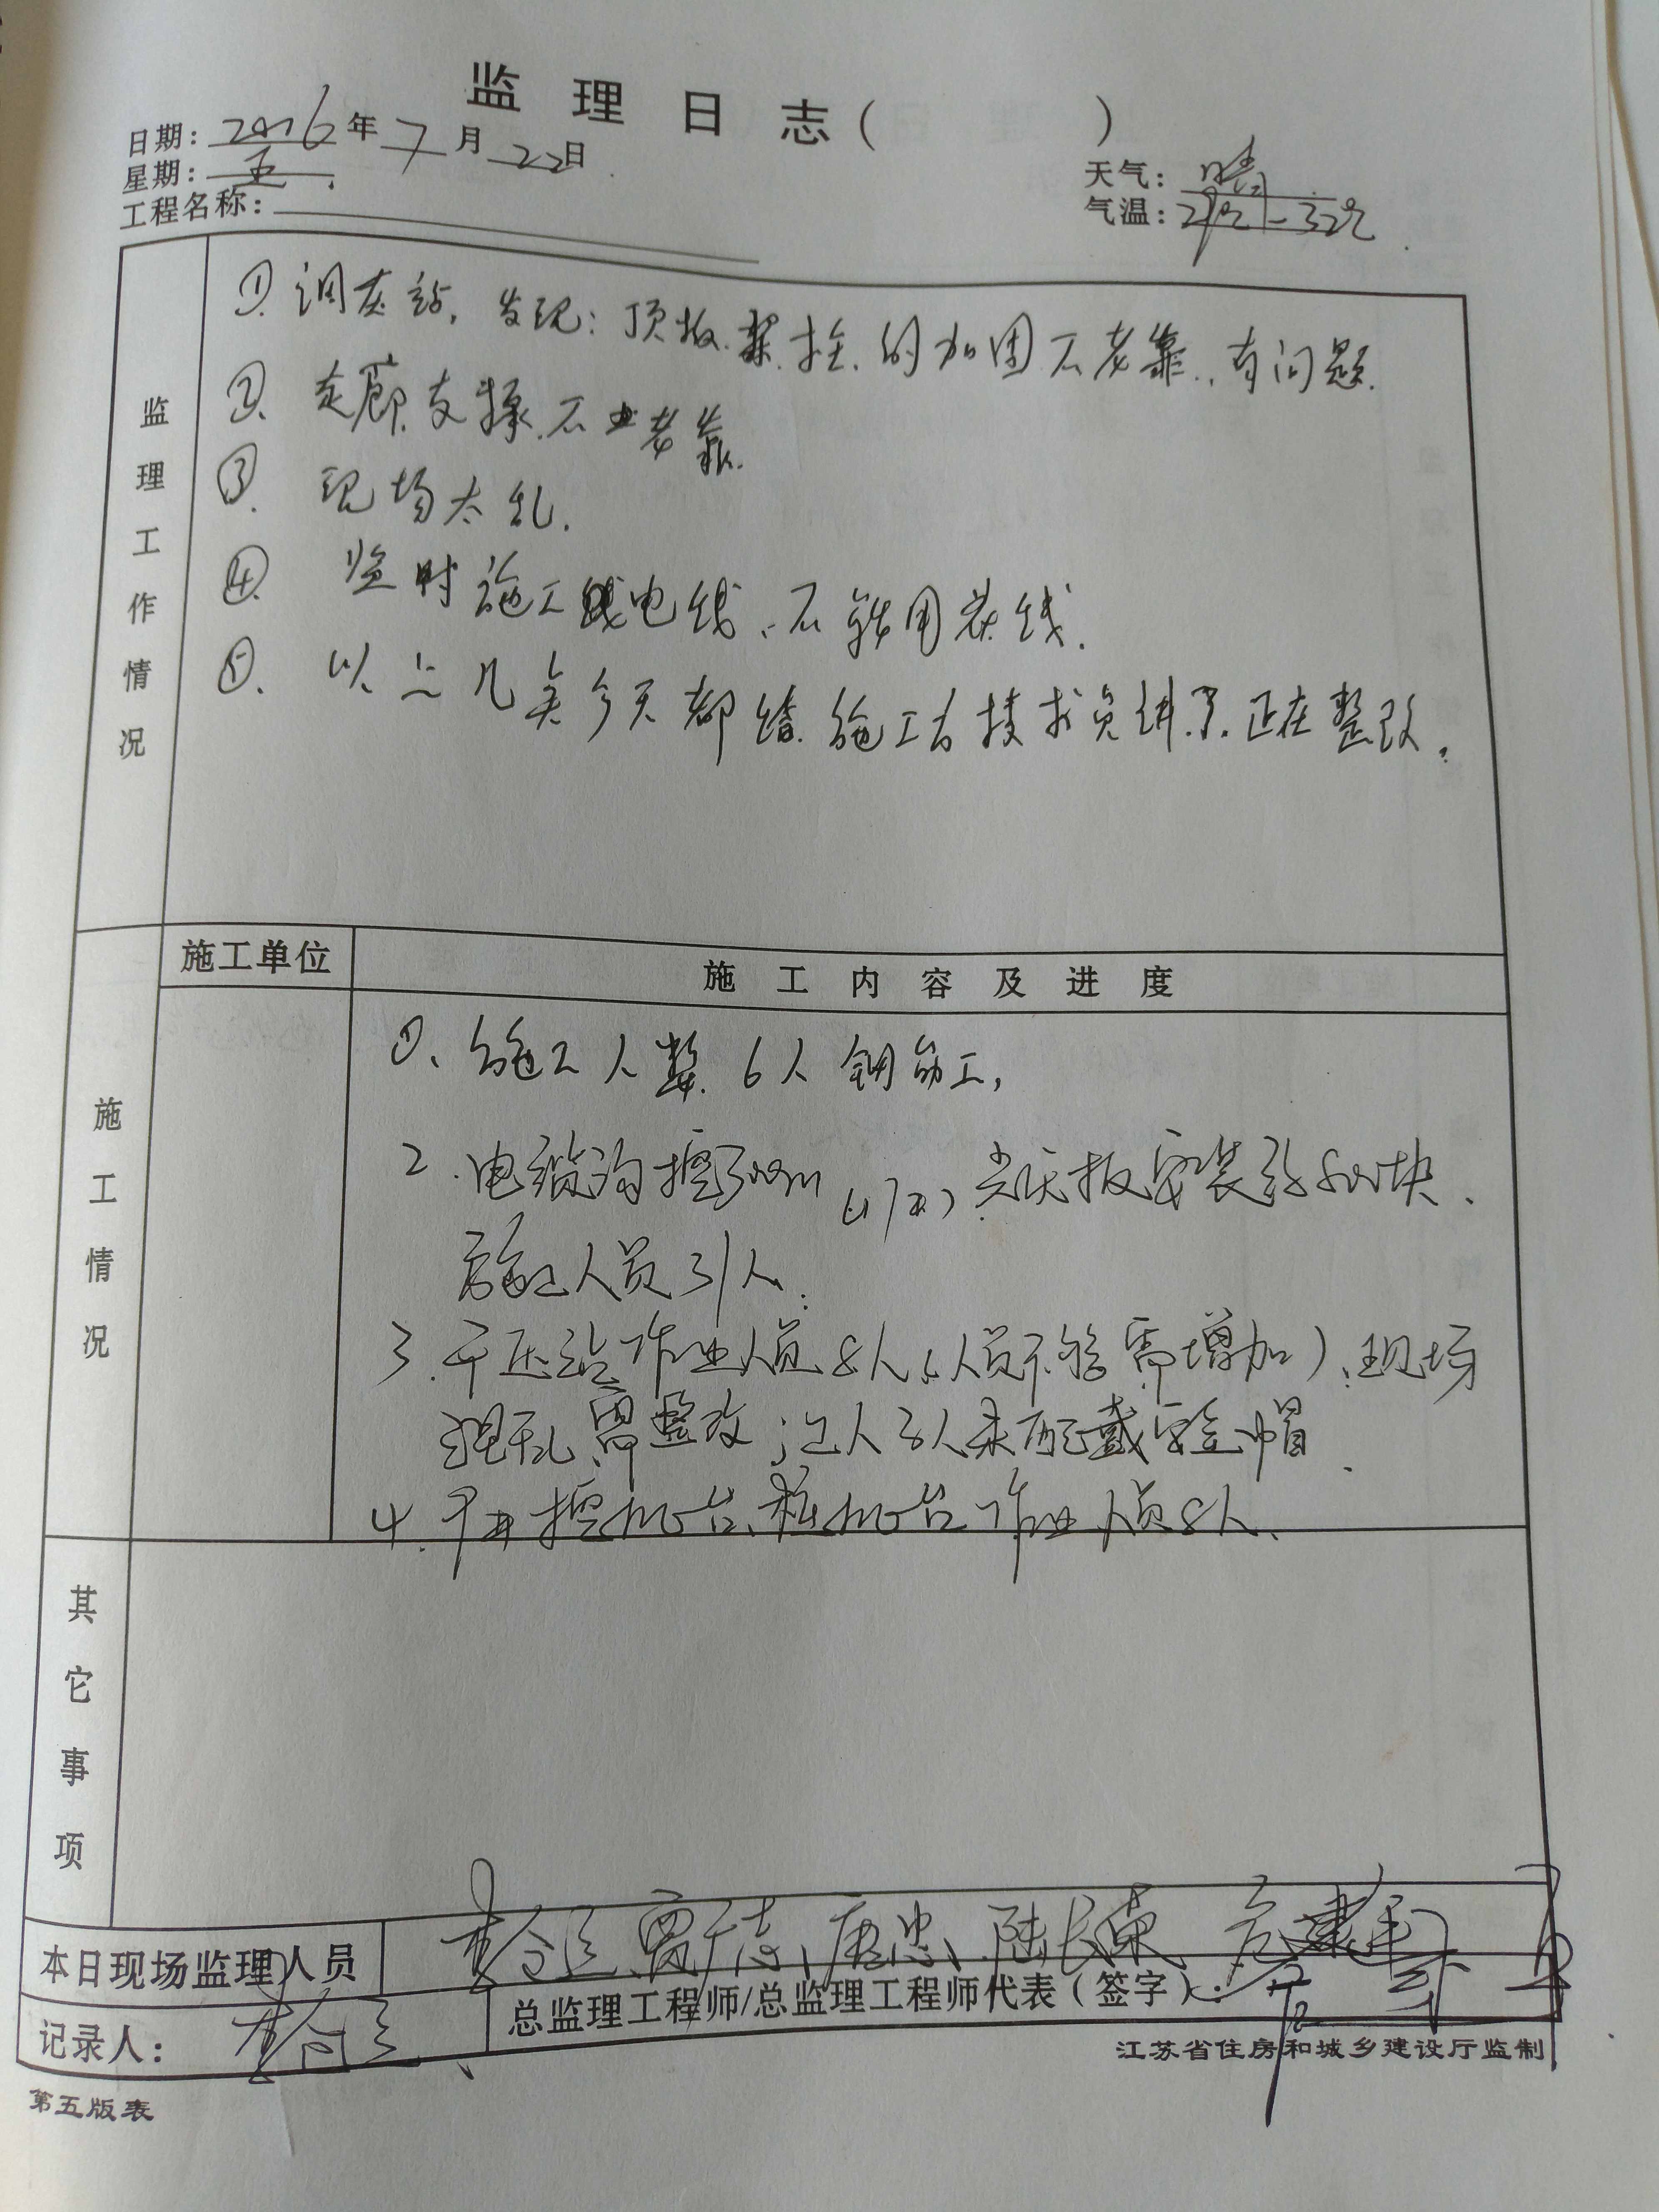 监理日志（ ）
日期：2016年7月22日
星期：五
天气：晴
工程名称：
气温：2 ℃-32℃
监理工作情况
①调压站，发现：顶板.梁.柱.的加固不老靠，有问题.
②走廊支撑.不老靠.
③.现场太乱.
④.临时施工电线、不能用花线.
⑤.以上几类今天都给.施工方技术员讲了.正在整改。
施工单位
施工内容及进度
施工情况
①、施工人数.6人钢筋工,
2.电缆沟挖 m 板安装 块.
施工人员31人.
3.干压站作业人员8人(人员不够需增加)、现场
混乱需整改;工人 人未配戴安全帽.
4. 挖机 台、桩机 台作业人员8人、
其它事项
本日现场监理人员
陆长荣
记录人：
总监理工程师/总监理工程师代表（签字）：
江苏省住房和城乡建设厅监制
第五版表